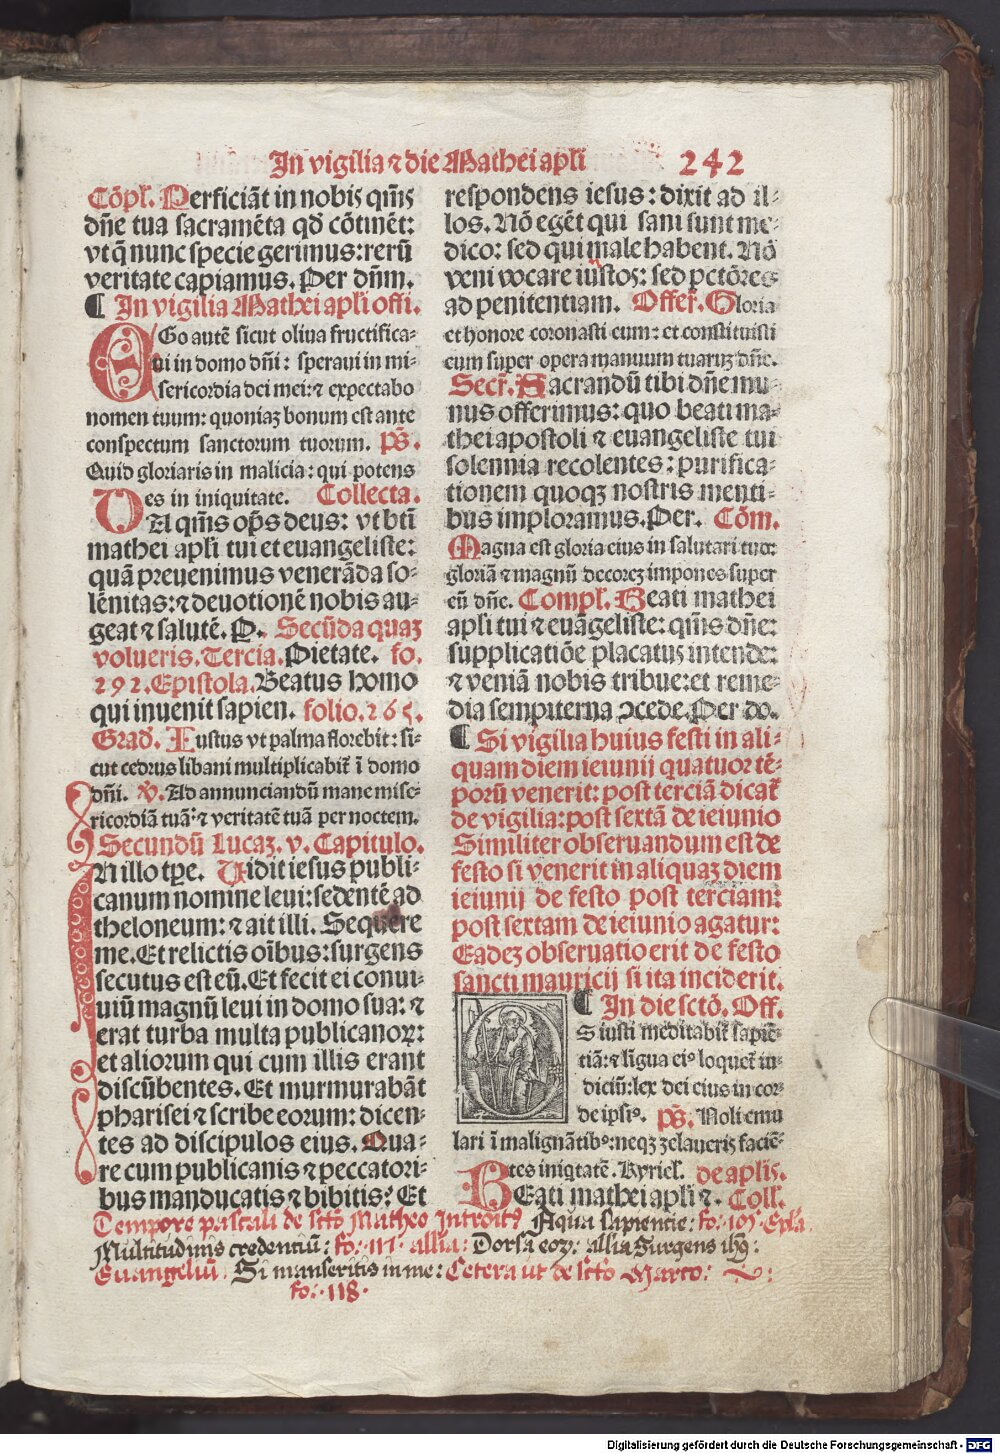 In vigilia ⁊ die Mathei apľi 242
Cōpł. Perficiāt in nobis qm̄s
dn̄e tua sacramēta qď cōtinēt:
vt q̄ nunc specie gerimus: rerū
veritate capiamus. Per dn̄m.
¶ In vigilia Mathei apľi offi.
EGo autē sicut oliua fructifica⸗
ui in domo dn̄i: speraui in mi⸗
sericordia dei mei: ⁊ expectabo
nomen tuum: quoniaꝫ bonum est ante
conspectum sanctorum tuorum. ps̄.
Quid gloriaris in malicia: qui potens
es in iniquitate. Collecta.
DA qm̄s op̄s deus: vt bt̄i
mathei apľi tui et euangeliste:
quā preuenimus venerāda so⸗
lēnitas: ⁊ deuotionē nobis au⸗
geat ⁊ salutē. P. Secūda quaꝫ
volueris. Tercia. Pietate. fo.
292. Epistola. Beatus homo
qui inuenit sapien. folio. 265.
Grad. Iustus vt palma florebit: si⸗
cut cedrus libani multiplicabiť ī domo
dn̄i. ℣. Ad annunciandū mane mise⸗
ricordiā tuā: ⁊ veritatē tuā per noctem.
Secundū Lucaꝫ. v. Capitulo.
IN illo tp̄e. Vidit iesus publi⸗
canum nomine leui: sedentē ad
theloneum: ⁊ ait illi. Sequere
me. Et relictis oībus: surgens
secutus est eū. Et fecit ei conui⸗
uiū magnū leui in domo sua: ⁊
erat turba multa publicanoꝝ:
et aliorum qui cum illis erant
discūbentes. Et murmurabāt
pharisei ⁊ scribe eorum: dicen⸗
tes ad discipulos eius. Qua⸗
re cum publicanis ⁊ peccatori⸗
bus manducatis ⁊ bibitis? Et
respondens iesus: dixit ad il⸗
los. Nō egēt qui sani sunt me⸗
dico: sed qui male habent. Nō
veni vocare iustos: sed pctōres
ad penitentiam. Offer. Gloria
et honore coronasti eum: et constituisti
eum super opera manuum tuaruꝫ dn̄e.
Secr. Sacrandū tibi dn̄e mu⸗
nus offerimus: quo beati ma⸗
thei apostoli ⁊ euangeliste tui
solennia recolentes: purifica⸗
tionem quoqꝫ nostris menti⸗
bus imploramus. Per. Cōm.
Magna est gloria eius in salutari tuo:
gloriā ⁊ magnū decoreꝫ impones super
eū dn̄e. Compł. Beati mathei
apľi tui ⁊ euāgeliste: qm̄s dn̄e:
supplicatiōe placatus intende:
⁊ veniā nobis tribue: et reme⸗
dia sempiterna ↄcede. Per do.
¶ Si vigilia huius festi in ali⸗
quam diem ieiunij quatuor tē⸗
porū venerit: post terciā dicať
de vigilia: post sextā de ieiunio
Similiter obseruandum est de
festo si venerit in aliquaꝫ diem
ieiunij de festo post terciam:
post sextam de ieiunio agatur:
Eadeꝫ obseruatio erit de festo
sancti mauricij si ita inciderit.
¶ In die sctō. Off.
OS iusti meditabiť sapiē⸗
tiā: ⁊ līgua eiꝰ loqueť iu⸗
diciū: lex dei eius in cor⸗
de ipsiꝰ. ps̄. Noli emu
lari ī malignātibꝰ: neqꝫ zelaueris faciē⸗
tes iniqtatē. Kyriel. de aplis.
BEati mathei apľi ⁊. Coll.
Tempore pascali de sctō Matheo Introitꝰ Aqua sapientie: fo: 105. Epla
Multitudinis credentiū: fo: 117. allia: Dorsa eoꝝ: allia Surgens ihꝰ:
Euangeliū. Si manseritis in me: Cetera ut de sctō Marco:
fo: 118.
Digitalisierung gefördert durch die Deutsche Forschungsgemeinschaft - DFG